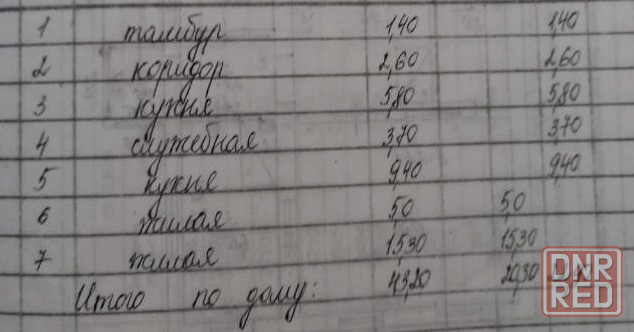 1 тамбур 1,40 1,40
2 коридор 2,60 2,60
3 кухня 5,80 5,80
4 служебная 3,70 3,70
5 кухня 9,40 9,40
6 жилая 5,0 5,0
7 жилая 15,30 15,30
Итого по дому: 43,20 20,30
DNR
RED